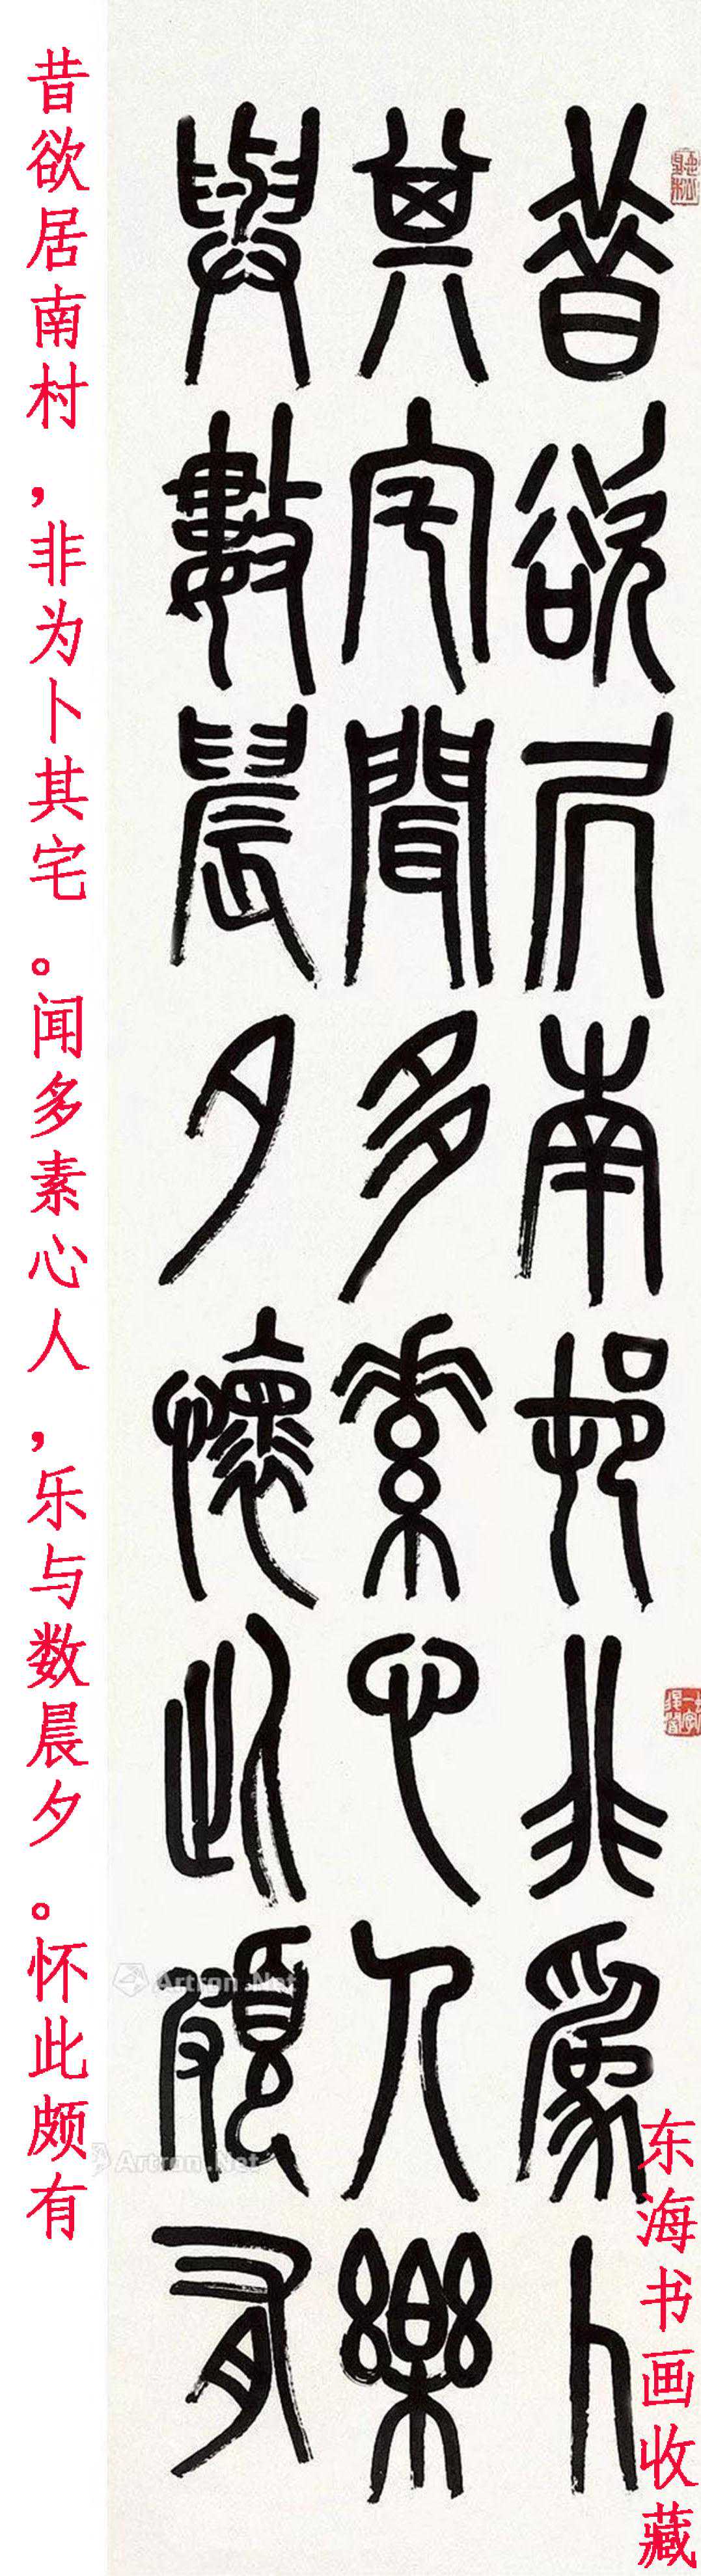 昔欲尻南邨非為卜
其宅聞多素心人樂
與數晨夕懷此頗有
昔欲居南村，非为卜其宅。闻多素心人，乐与数晨夕。怀此颇有
东海书画收藏
Artron.Net
Artron.Net